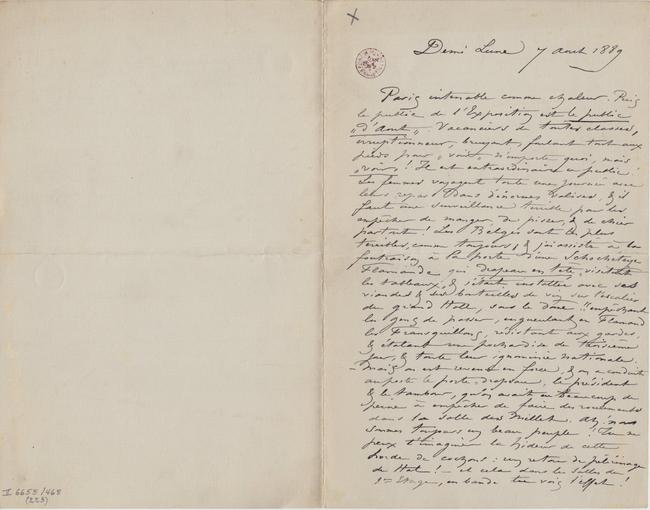 Demi Lune 7 Aout 1889
Paris intenable comme chaleur. Puis
le public de l'Exposition est le public
"d'Aout" Vacanciers de toutes classes,
bruyant, foulant tout aux
pieds pour "voir" n'importe quoi, mais
"voir"! Il est extraordinaire ce public!
Les femmes voyagent toute une journée avec
leurs repas dans d'énormes valises, & il
faut une surveillance terrible pour les
empêcher de manger, de pisser, & de chier
partout! Les Belges sont les plus
terribles, comme toujours; & j'ai assisté à la
à la porte d'une
Flamande qui drapeau en tête, visitait
les tableaux, & s'était installée avec ses
viandes & ses bouteilles de vin sur l'escalier
du grand Hall, sous le Dôme!! empêchant
les gens de passer, engueulant en Flamand
les Fransquillons, résistant aux gardes,
& étalant une pochardise de troisième
jour, & toute leur ignominie nationale.
– Mais on est revenu en force, & on a conduit
au poste le porte-drapeau, le président
& le tambour, qu'on avait eu beaucoup de
peine à empêcher de faire des roulements
dans la salle des Millet. Ah! nous
sommes toujours un beau peuple! Tu ne
peux t'imaginer la hideur de cette
horde de cochons: un retour de pélerinage
de Hal! – et cela dans les salles du
1er Etage, en bande tu vois l'effet!
II 6655/468
(223)